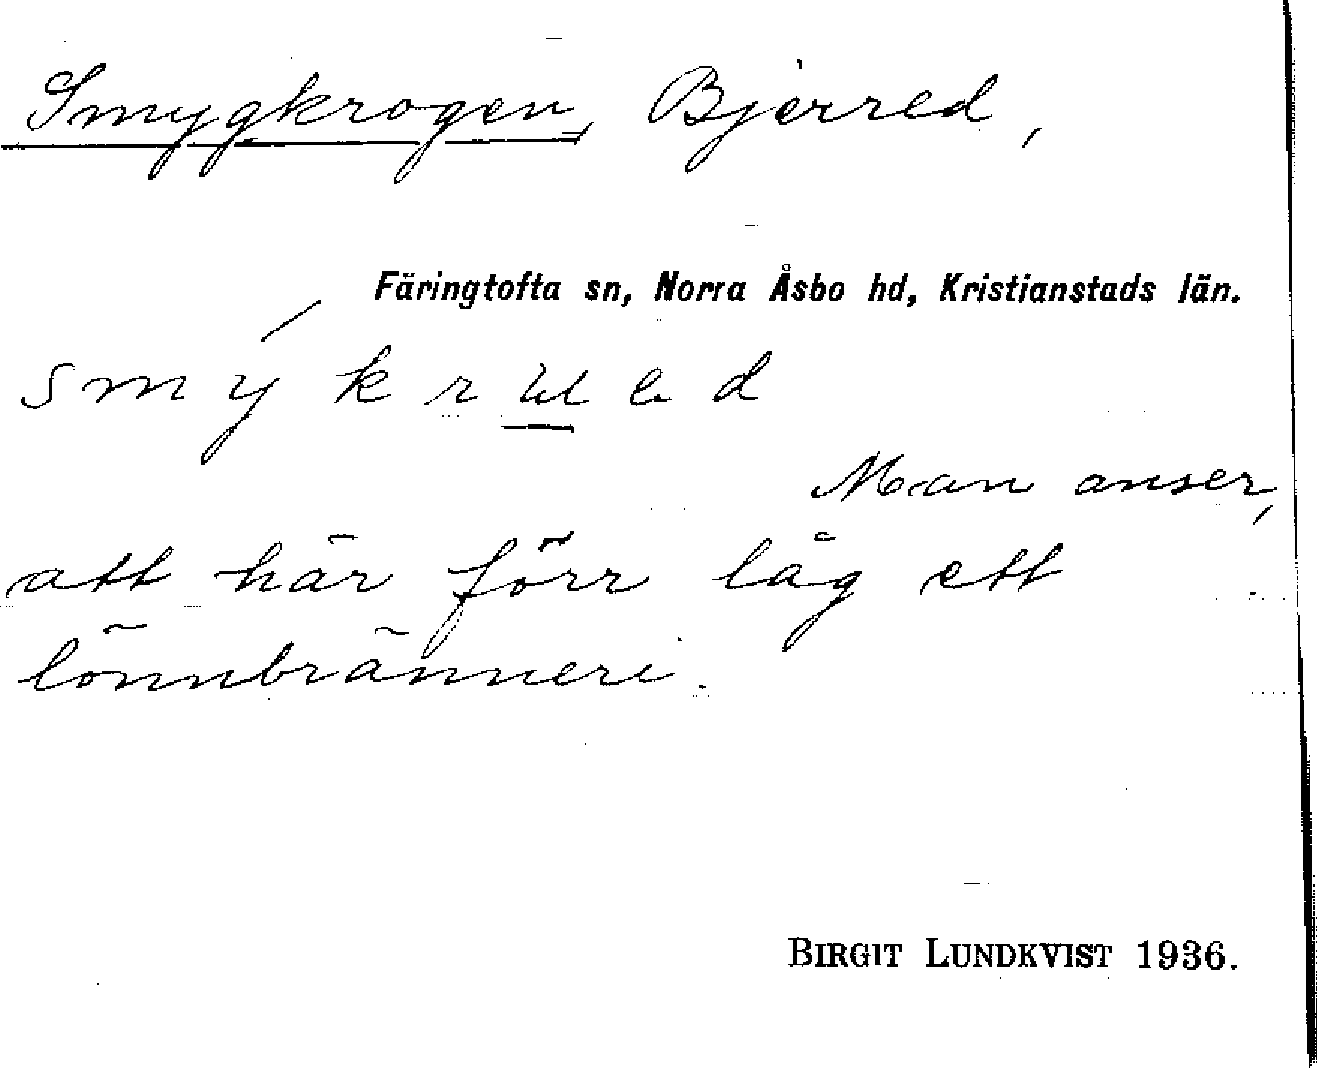 Smygkrogen, Bjerred,
Färingtofta sn, Norra Åsbo hd, Kristianstads län.
Man anser,
att här förr låg ett
lönnbränneri.
BIRGIT LUNDKVIST 1936.